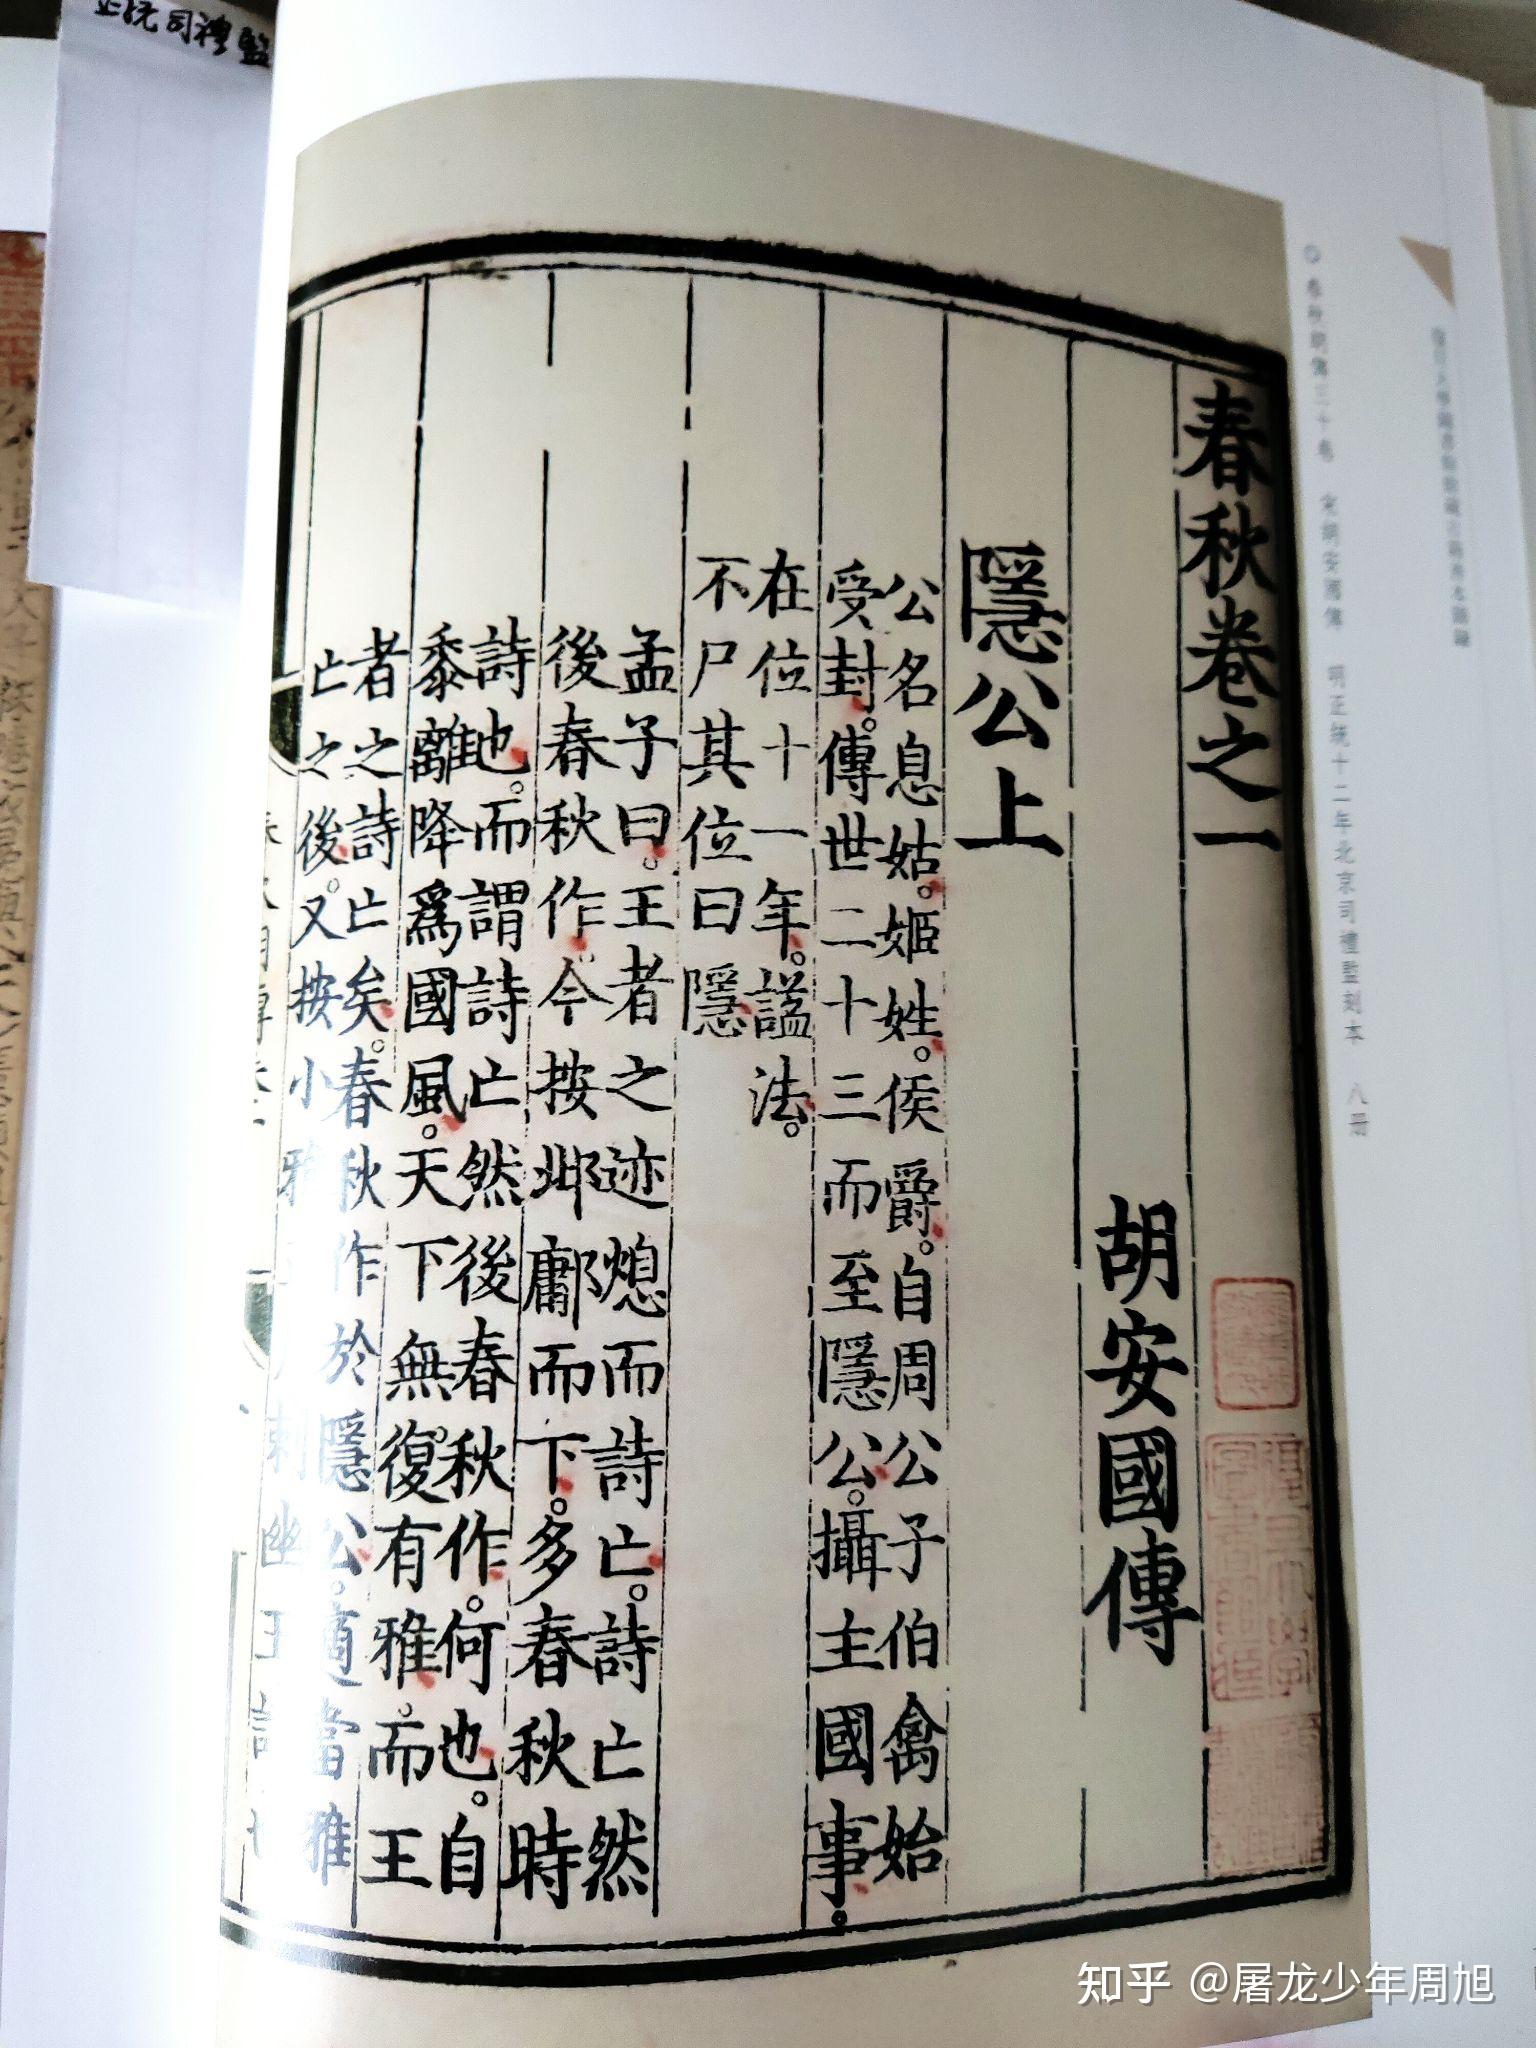 春秋卷之一
胡安國傳
隱公上
公名息姑。姬姓。侯爵。自周公子伯禽始
受封。傳世二十三而至隱公。攝主國事。
在位十一年。謚法。
不尸其位曰隱
孟子曰。王者之迹熄而詩亡。詩亡然
後春秋作。今按邶鄘而下。多春秋時
詩也。而謂詩亡然後春秋作。何也。自
黍離降爲國風。天下無復有雅。而王
者之詩亡矣。春秋作於隱公。適當雅
亡之後。又按小雅
刺幽王
春秋胡傳三十卷 宋胡安國傳 明正統十二年北京司禮監刻本 八册
正統司禮監
知乎 @屠龙少年周旭